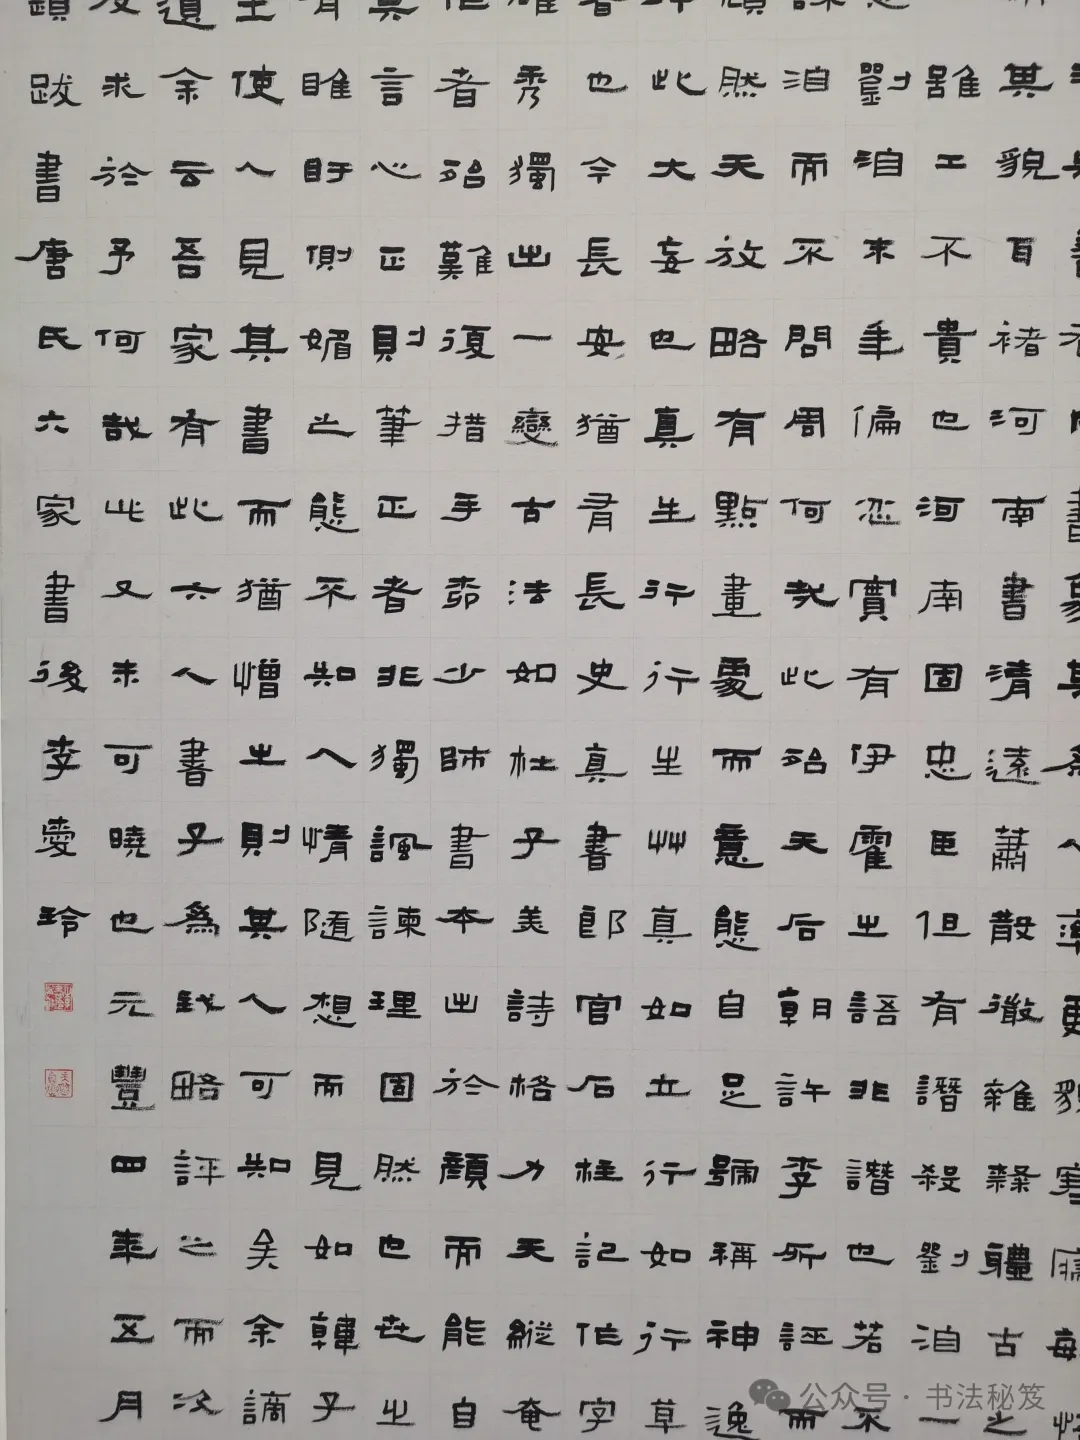 其貌耳褚河南書清遠蕭散微雜隸體古之
雖工不貴也河南固忠臣但有譖殺劉洎一
劉洎末年偏忿實有伊霍之語非譖也若不
洎而不問周何哉此殆天后朝許李所誣而
然天放略有點畫處而意態自足號稱神逸
此大妄也真生行行生艸真如立行如行草
也今長安猶有長史真書郎官石柱記作字
秀獨出一變古法如杜子美詩格力天縱奄
者殆難復措手柳少師書本出於顏而能自
言心正則筆正者非獨諷諫理固然也世之
睢盱側媚之態不知人情隨想而見如韓子
使人見其書而猶憎之則其人可知矣余謫
余云吾家有此六人書子為我略評之而次
求於予何哉此又未可曉也元豐四年五月
跋書唐氏六家書後李愛玲
公众号·书法秘笈